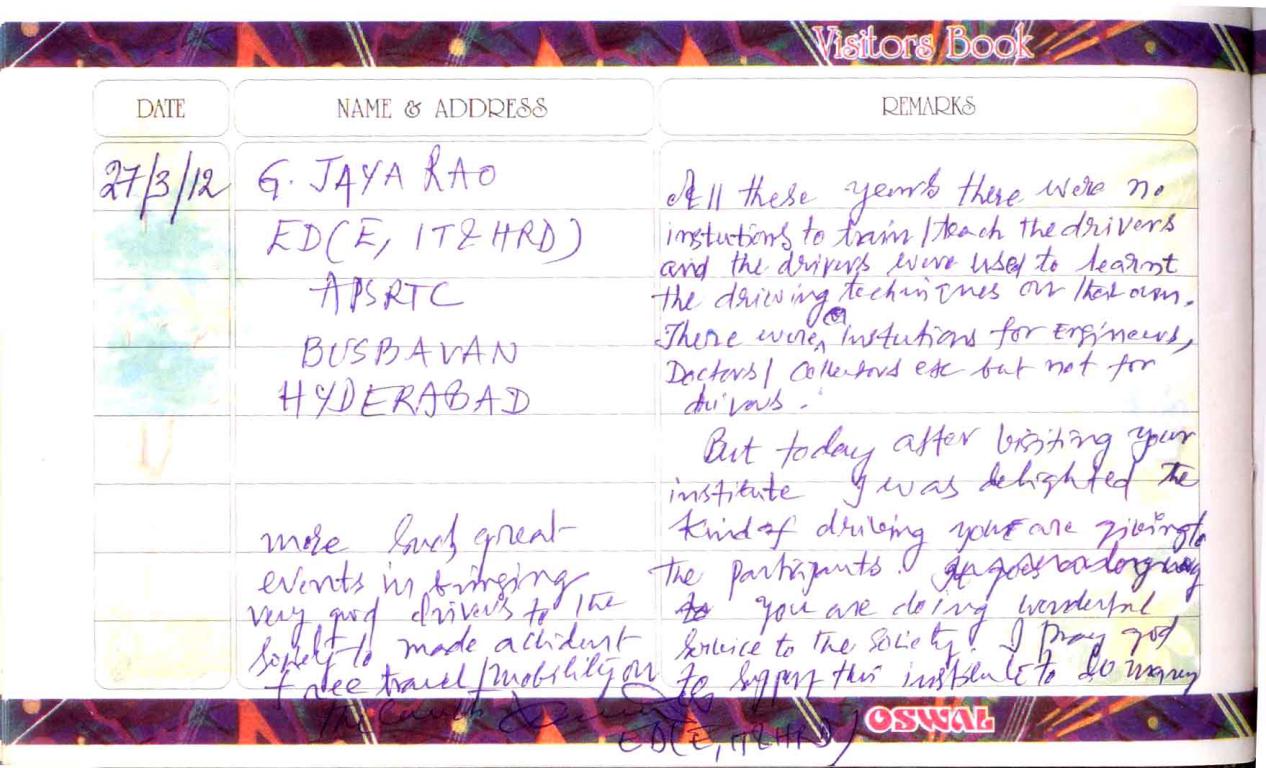 Visitors Book
DATE
NAME & ADDRESS
REMARKS
27/3/12
G. JAYA RAO
ED(E, IT & HRD)
APSRTC
BUSBAVAN
HYDERABAD
All these years there were no
instutions to train/teach the drivers
and the drivers were used to learnt
the driving techniques on their own.
There were instutions for Engineers,
Doctors/ Collectors etc but not for
drivers.
But today after visiting your
institute I was delighted the
kind of driving you are giving to
the participants. It goes a long way
to you are doing wonderful
service to the society. I pray god
to support this institute to do many
more such great
events in bringing
very good drivers to the
society to made accident
free travel/mobility on
the earth
ED(E, IT & HRD)
OSWAL